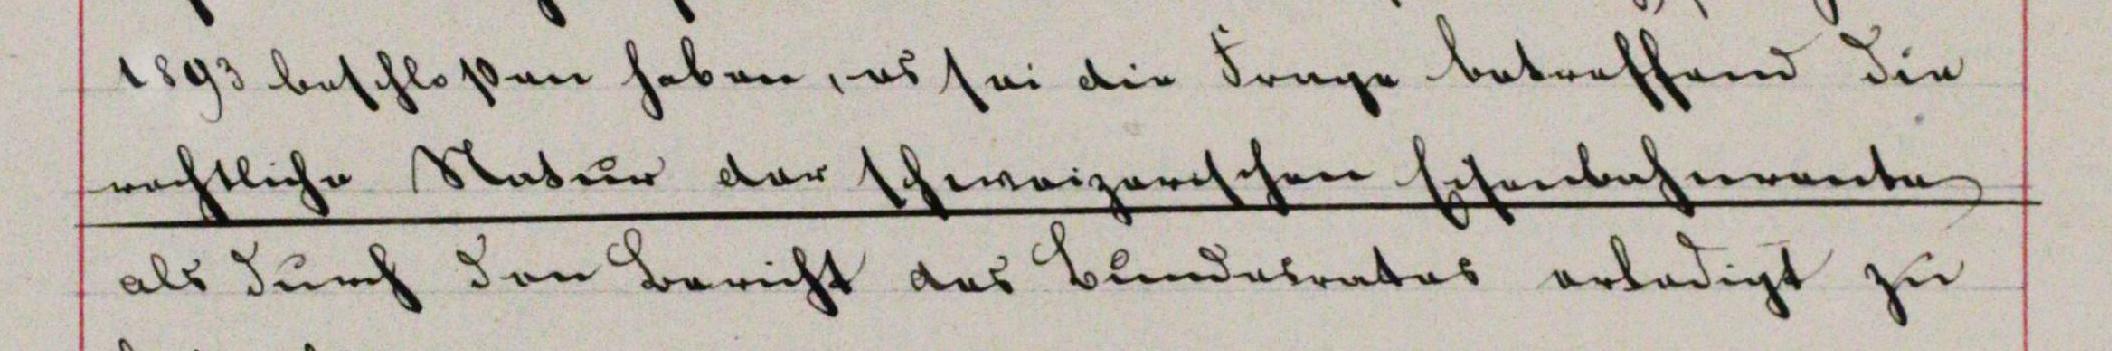 1893 beschloßen haben, es sei die Frage betreffend die
rechtliche Natur der schweizerischen Eisenbahnrente
als durch den Bericht des Bundesrates erledigt zu